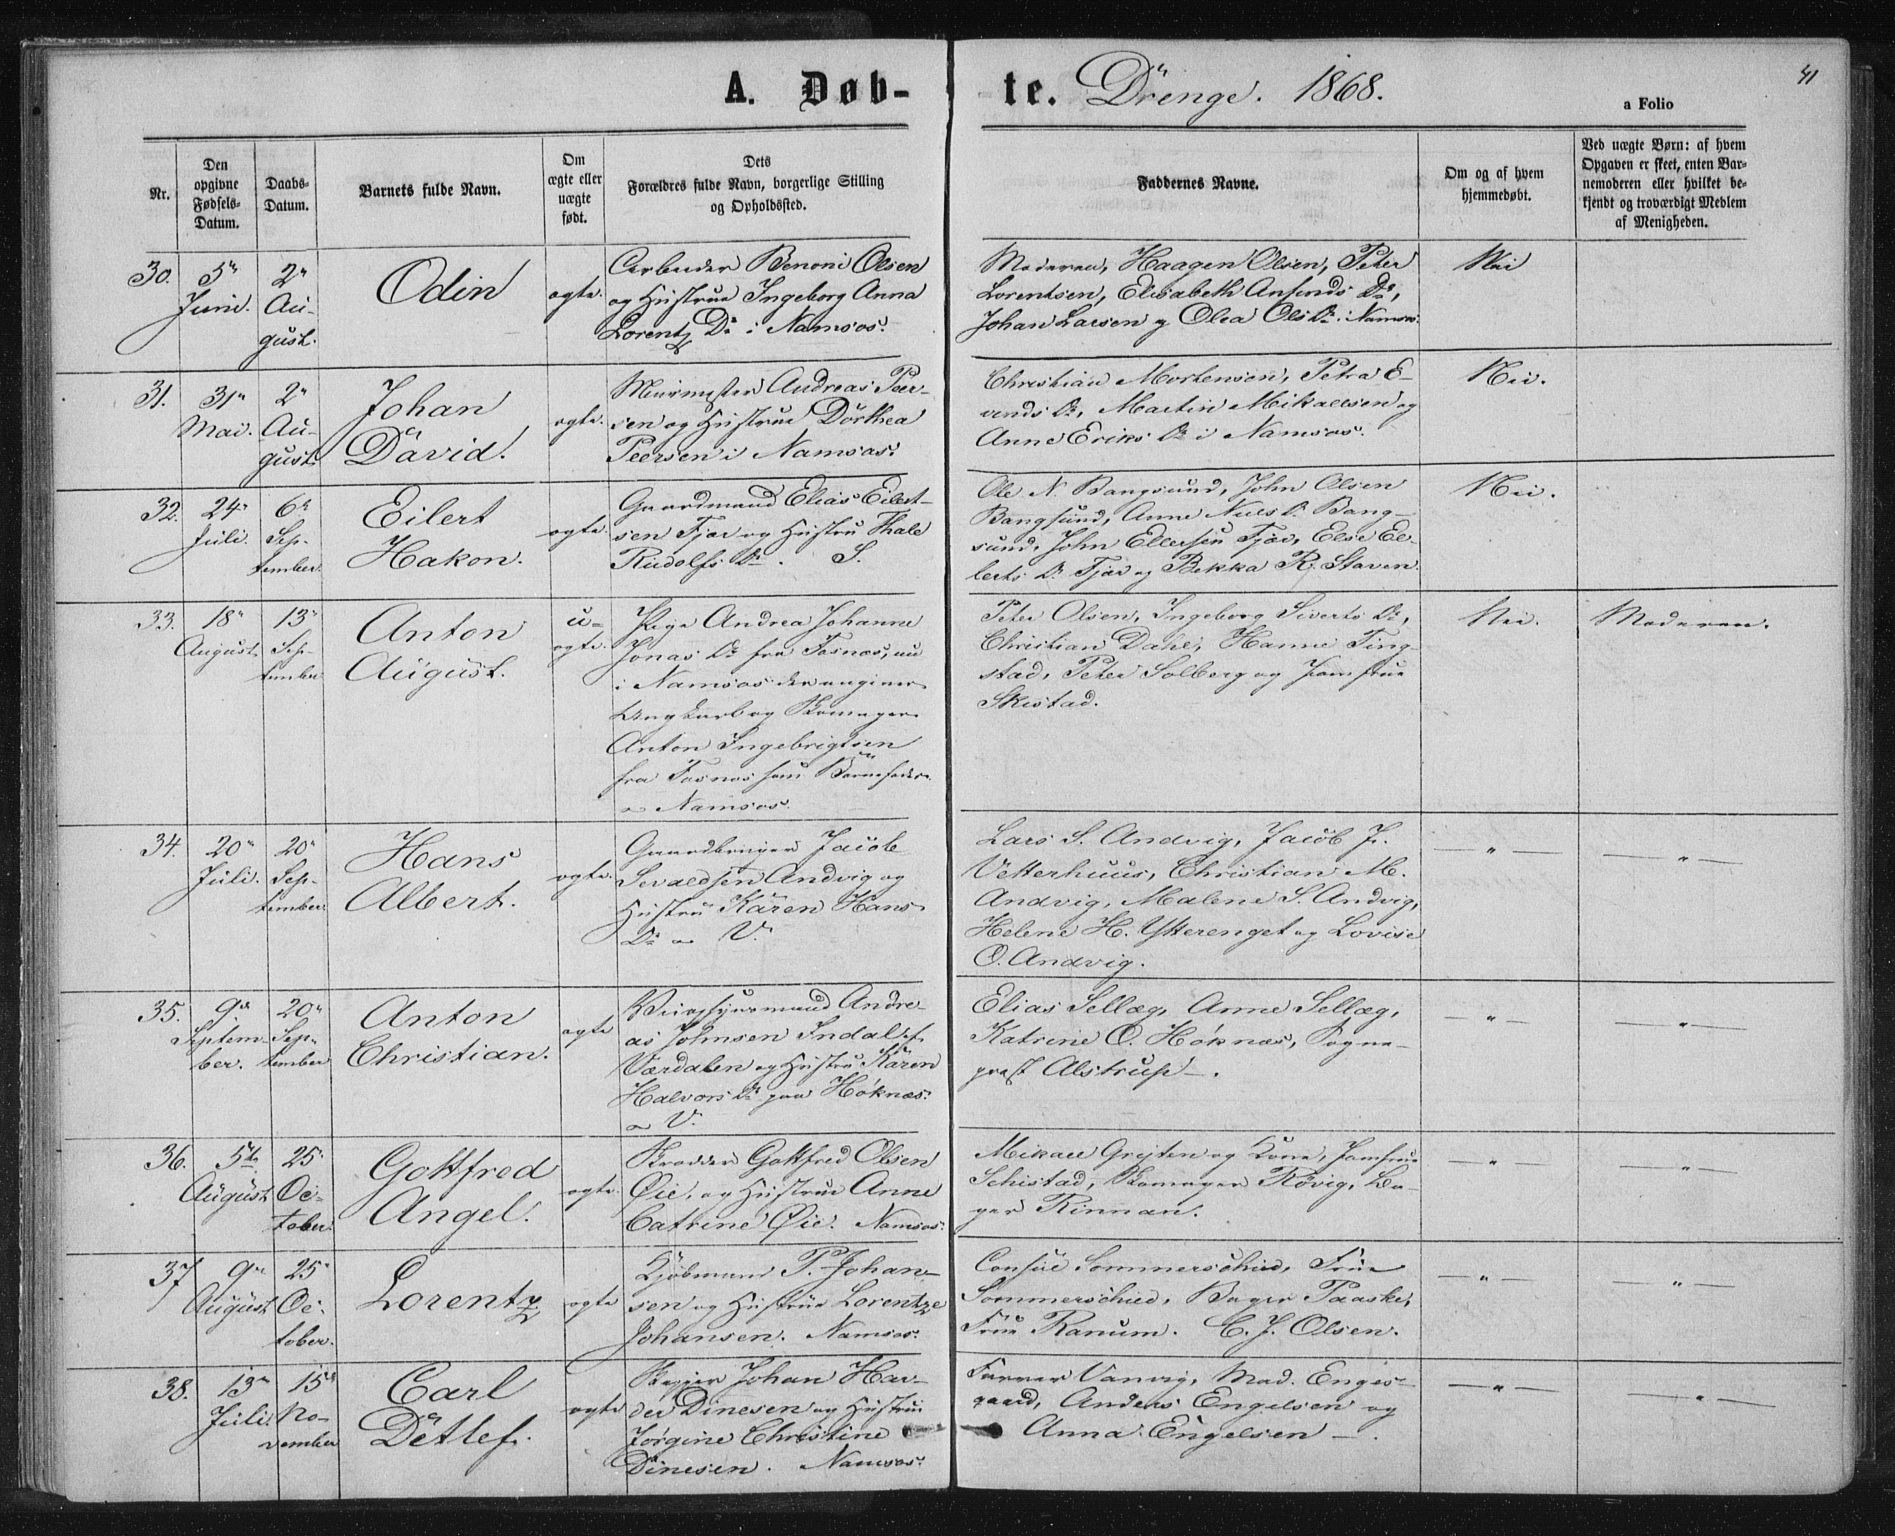 A. Døb- te. Drenge. 1868.
41
a Folio
Nr.
Den opgivne Fødsels-Datum.
Daabs-Datum.
Barnets fulde Navn.
Om ægte eller uægte født.
Dets Forældres fulde Navn, borgerlige Stilling og Opholdssted.
Faddernes Navne.
Om og af hvem hjemmedøbt.
Ved uægte Børn: af hvem Opgaven er skeet, enten Barnemoderen eller hvilket bekjendt og troværdigt Medlem af Menigheden.
30.
5te Juni.
2den August.
Odin
ægte.
Arbeider Benoni Olsen
og Hustrue Ingeborg Anna
Lorentz Dr i Namsos.
Moderen, Haagen Olsen, Peter
Lorentsen, Elisabeth Dr,
Johan Larsen og Olea Ols Dr. Namsos.
Nei
31.
31te Mai.
2den August.
Johan
David.
ægte.
Muurmester Andreas Peer-
sen og Hustrue Dorthea
Peersen i Namsos.
Christian Mortensen, Petra E-
vends Dr, Martin Mikaelsen og
Anne Eriks Dr i Namsos.
Nei.
32.
24de Juli.
6te September.
Eilert
Hakon.
ægte.
Gaardmand Elias Eilert-
sen Fjær og Hustru Thale
Rudolfs Dr. S.
Ole N. Bangsund, John Olsen
Bangsund, Anne Niels Dr Bang-
sund, John Ellefsen Fjær, Else El-
lerts Dr Fjær og Bekka R. Staven.
Nei.
33.
18de August.
13de September
Anton
August.
u-
ægte.
Pige Andrea Johanne
Jonas Dr fra Fosnæs, nu
i Namsos der angiver
Ungkarl og Skomager
Anton Ingebrigtsen
fra Fosnæs som Barnefader.
Namsos.
Peter Olsen, Ingeborg Siverts Dr,
Christian Dahl, Hanne Ting-
stad, Peter Solberg og Jomfrue
Skistad.
Nei.
Moderen.
34.
20de Juli.
20de September.
Hans
Albert.
ægte.
Gaardbruger Jacob
Sevaldsen Andvig og
Hustru Karen Hans
Dr V.
Lars S. Andvig, Jacob J.
Vetterhuus, Christian M.
Andvig, Malene S. Andvig,
Helene H. Ytterenget og Lovise
O. Andvig.
— " —
— " —
35.
9de September.
20de September
Anton
Christian.
ægte
Andre-
as Johnsen Indal, f.
Værdalen og Hustru Karen
Halvors Dr paa Høknæs.
V.
Elias Sellæg, Anne Sellæg,
Katrine O. Høknæs, Sogne-
prest Alstrup —.
— " —
— " —
36.
5te August
25de October
Gottfred
Angel.
ægte.
Skrædder Gottfred Olsen
Øie, og Hustrue Anne
Catrine Øie. Namsos.
Mikael og Kone, Jomfrue
Schistad, Skomager Røvig, Ba-
ger Rinnan.
— " —
— " —
37
9de August
25de October.
Lorentz
ægte
Kjøbmand P. Johan-
sen og Hustrue Lorentze
Johansen. Namsos.
Consul Sommerschied, Frue
Sommerschied, Bager Paaske,
Frue Ranum. C. J. Olsen.
— " —
— " —
38.
13de Juli
15de November
Carl
Detlef.
ægte
Johan Har-
der Dinesen og Hustru
Jörgine Christine
Dinesen. Namsos.
Farver Vanvig, Mad. Engis-
gaard, Anders Engelsen og
Anna Engelsen —.
— " —
— " —